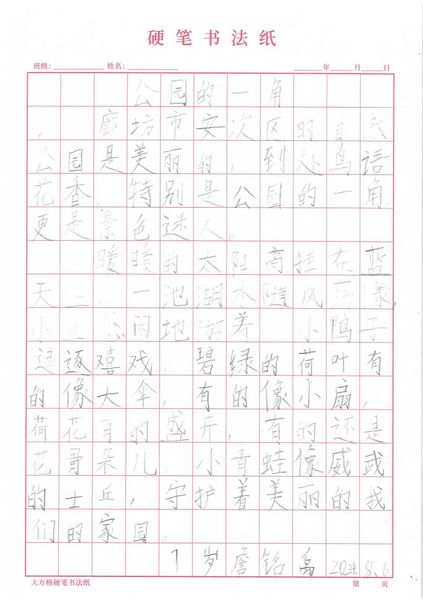 硬笔书法纸
班级： 姓名： 年 月 日
公园的一角
廊坊市安次区的自然
公园是美丽的，到处鸟语
花香特别是公园的一角
更是景色迷人。
暖暖的太阳高挂在蓝
天上，一池湖水随风荡漾，
小 悠闲地游着，小鸭子
追逐嬉戏，碧绿的荷叶有
的像大伞，有的像小扇，
荷花有的盛开，有的还是
花骨朵儿 小青蛙像威武
的士丘，守护着美丽的我
们的家园。
7岁詹铭禹
大方格硬笔书法纸 第 页